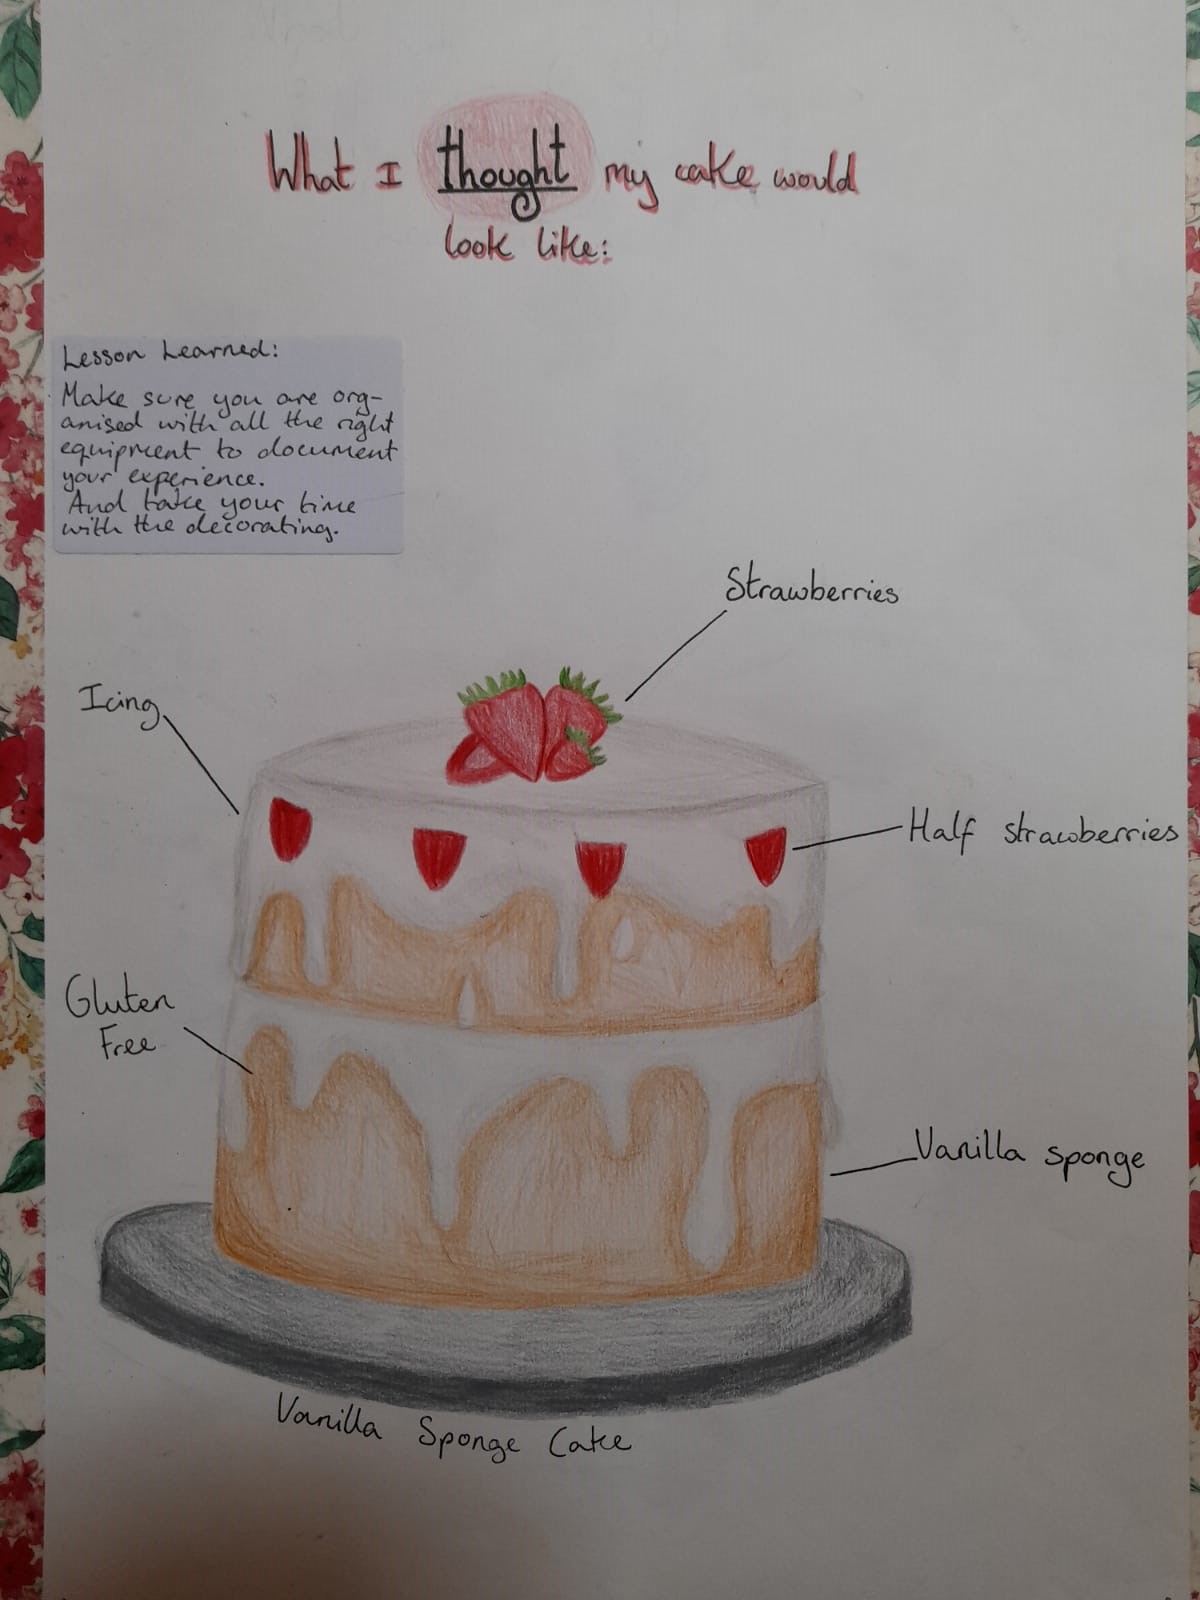 What I thought my cake would
look like:
Lesson Learned:
Make sure you are org-
anised with all the right
equipment to document
your experience.
And take your time
with the decorating.
Strawberries
Icing
Half strawberries
Gluten
Free
Vanilla sponge
Vanilla Sponge Cake